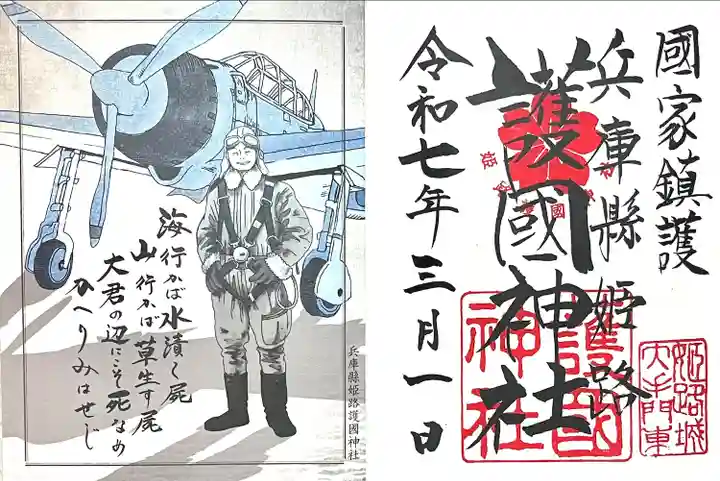 海行かば水漬く屍
山行かば草生す屍
大君の辺にこそ死なめ
かへりみはせじ
兵庫縣姫路護國神社
國家鎮護
兵庫縣姫路
護國神社
令和七年三月一日
護國
神社
姫路城
大手門東